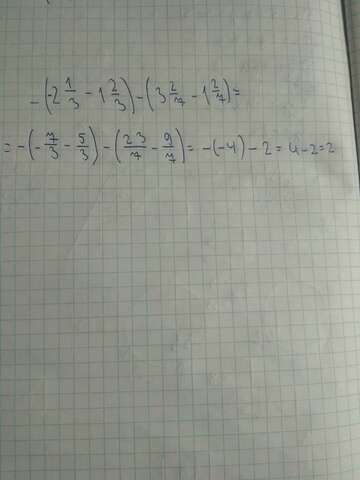 -(-2 1/3 - 1 2/3) - (3 2/7 - 1 2/7) =
= -(-7/3 - 5/3) - (23/7 - 9/7) = -(-4) - 2 = 4 - 2 = 2